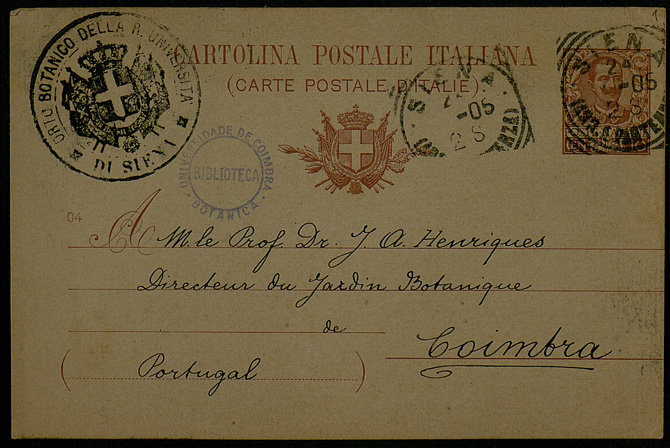 ORTO BOTANICO DELLA R. UNIVERSITÀ
DI SIENA
CARTOLINA POSTALE ITALIANA
(CARTE POSTALE D'ITALIE).
SIENA
-05
SIENA
-05
UNIVERSIDADE DE COIMBRA
BIBLIOTECA
BOTANICA
04
A M. le Prof. Dr. J. A. Henriques
Directeur du Jardin Botanique
de
Coimbra
(Portugal)